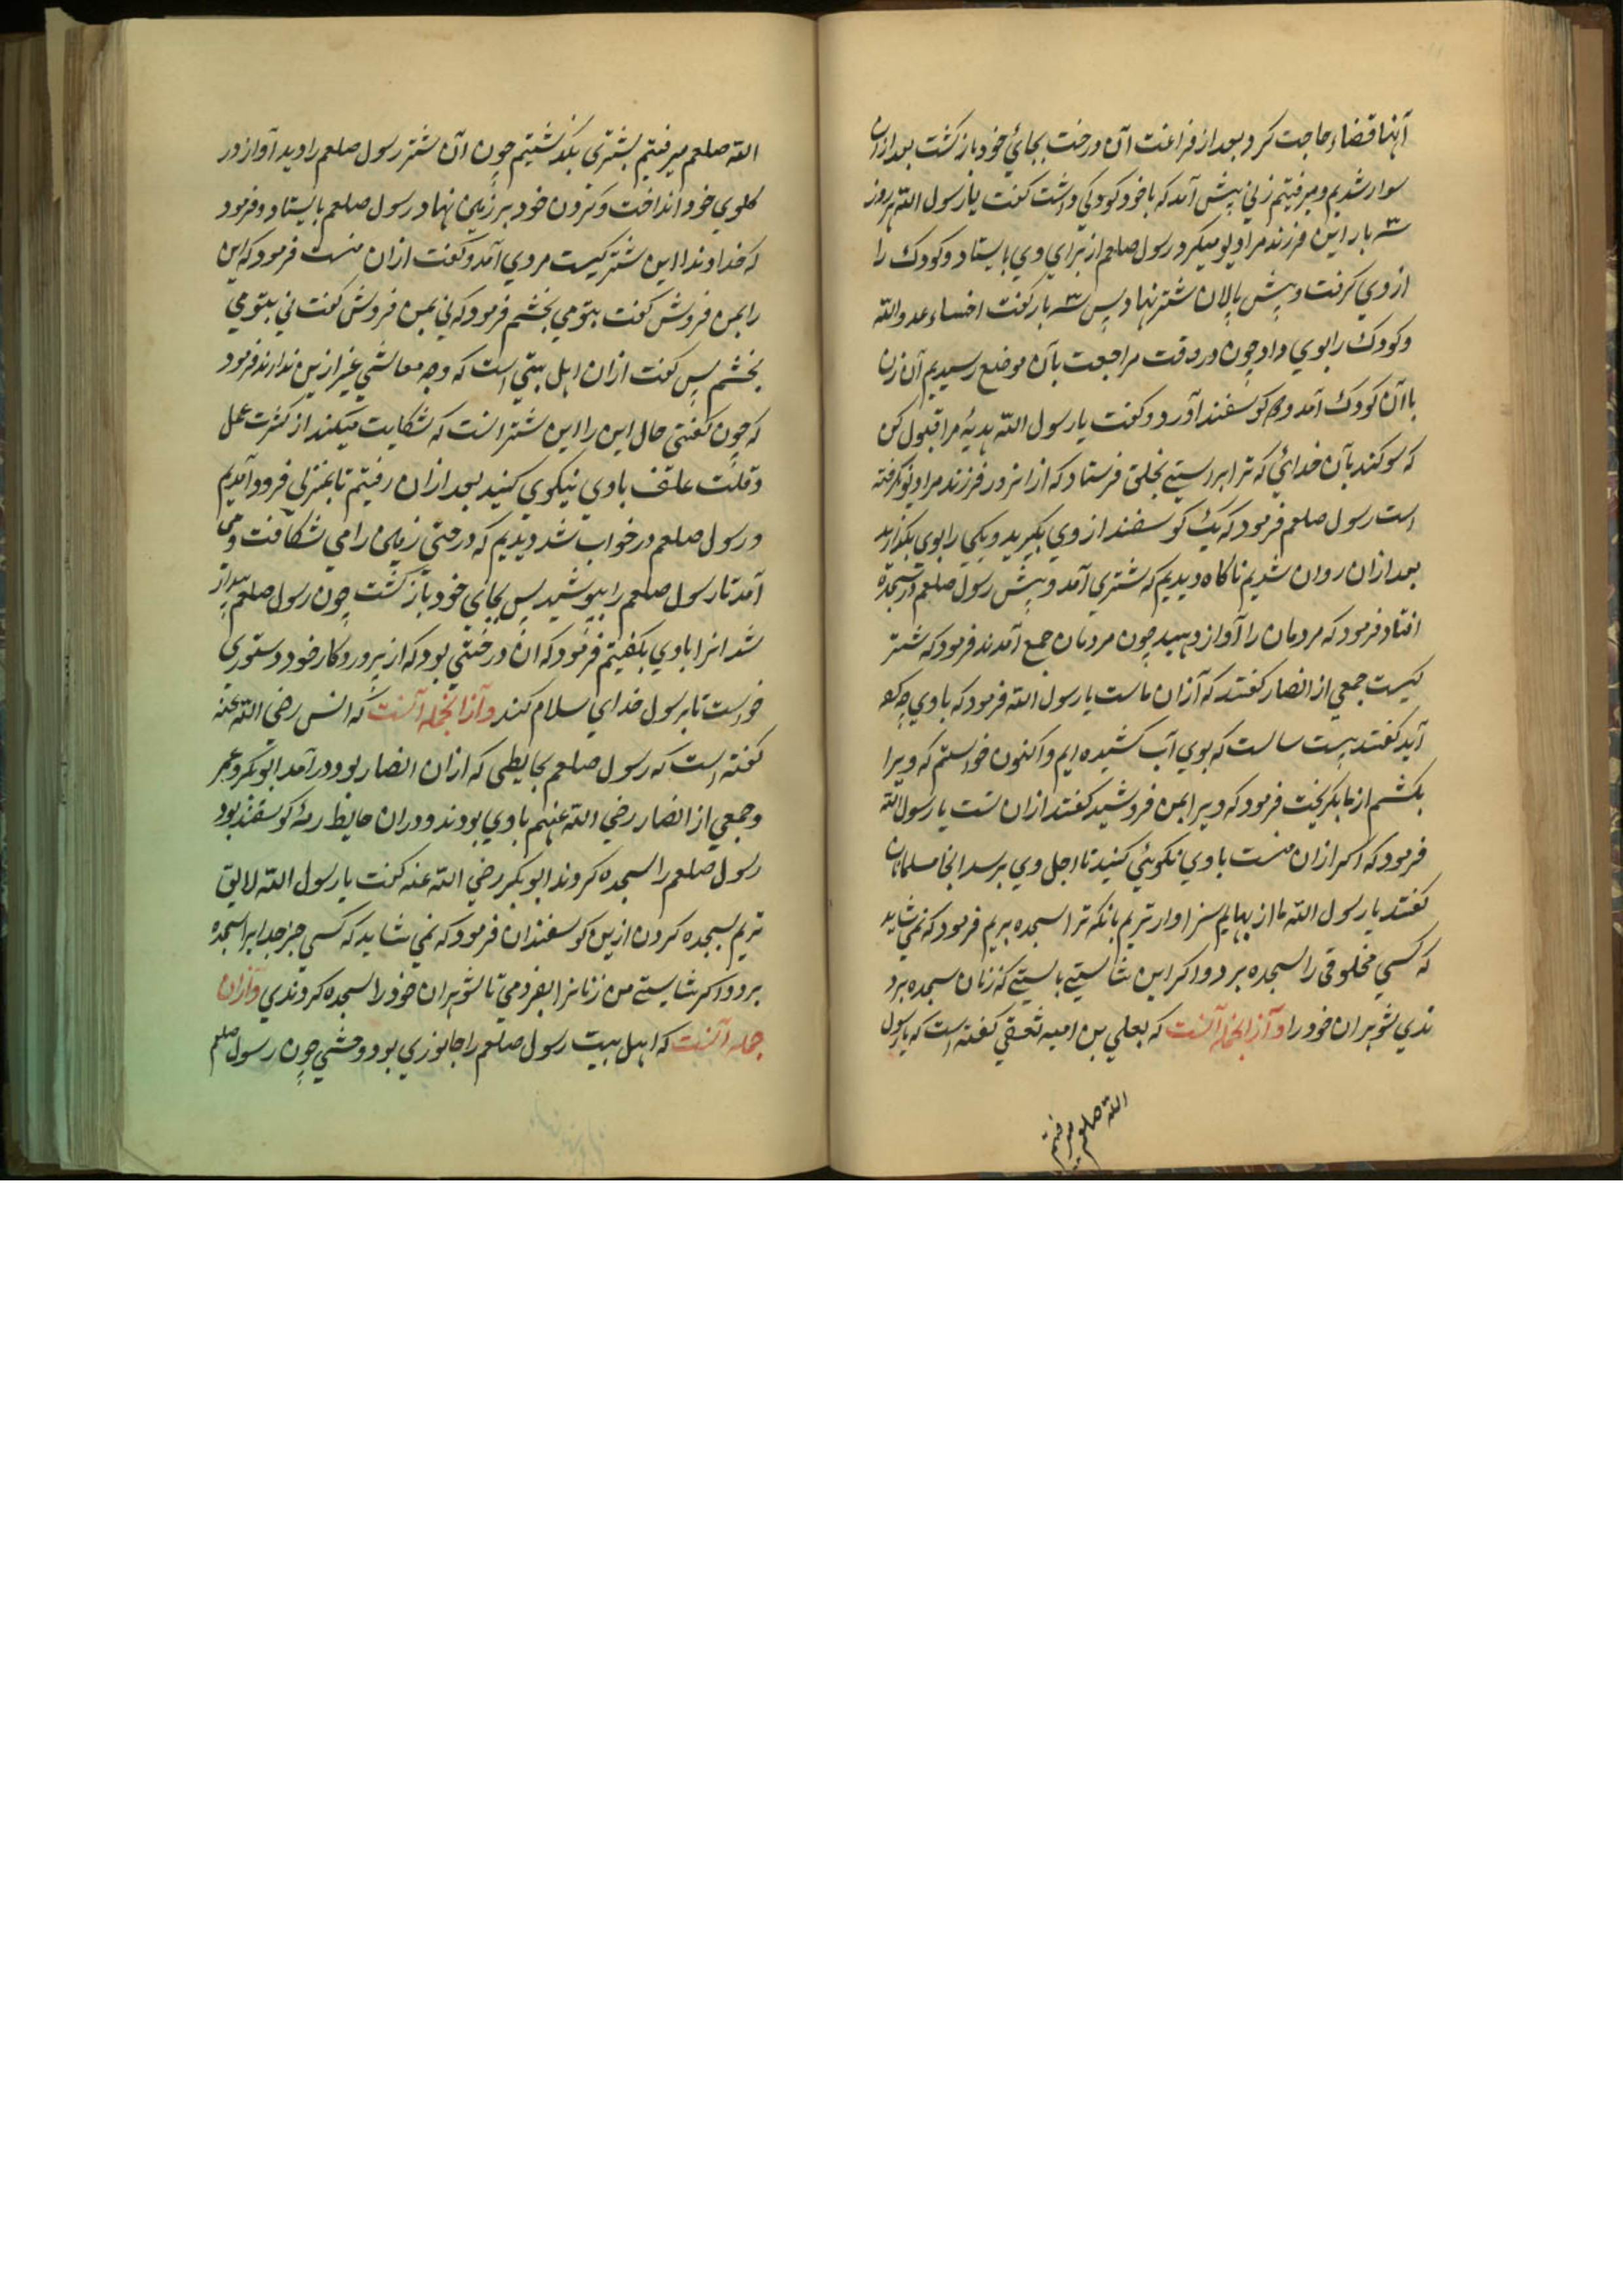 آنها قضاء حاجت کرد و بعد از فراغت آن درخت بجائ خود باز کشت بعد ازان
سوار شدیم و میرفتیم زنی پیش آمد که با خود کودکی داشت کفت یا رسول الله هر روز
سه بار این فرزند مرا دیو میکیرد رسول صلعم از برای وی بایستاد و کودک را
از وی کرفت و پیش پالان شتر نهاد پس سه بار کفت اخساء عدو الله
و کودک را بوی داد چون در وقت مراجعت بآن موضع رسیدیم آن زن
با آن کودک آمد و دو کوسفند آورد و کفت یا رسول الله هدیهٔ مرا قبول کن
که سوکند بآن خدائ که ترا براستی بخلق فرستاد که از انروز فرزند مرا دیو نکرفته
است رسول صلعم فرمود که یک کوسفند از وی بکیرید و یکی را بوی بکذارید
بعد ازان روان شدیم ناکاه دیدیم که شتری آمد و پیش رسول صلعم در سجده
افتاد فرمود که مردمان را آواز دهید چون مردمان جمع آمدند فرمود که شتر
کیست جمعی از انصار کفتند که آزان ماست یا رسول الله فرمود که با وی چه
آید کفتند بیست سالست که بوی آب کشیده ایم و اکنون خواستم که ویرا
بکشم از ما بکریخت فرمود که ویرا بمن فروشید کفتند ازان تست یا رسول الله
فرمود که اکر ازان منست با وی نکوئی کنید تا اجل وی برسد انجا مسلمانان
کفتند یا رسول الله ما از بهایم سزاوار تریم بانکه ترا سجده بریم فرمود که نمی شاید
که کسی مخلوقی را سجده برد و اکر این شایستی بایستی که زنان سجده برد
ندی شوهران خود را و آز انجمله آنست که یعلی بن امیه ثقفی کفته است که با رسول
الله صلعم میرفتیم
الله صلعم میرفتیم بشتری بکذشتیم چون آن شتر رسول صلعم را دید آواز در
کلوی خود انداخت و کردن خود بر زمین نهاد رسول صلعم بایستاد و فرمود
که خداوند این شتر کیست مردی آمد و کفت ازان منست فرمود که این
را بمن فروش کفت بتو می بخشم فرمود که نی بمن فروش کفت نی بتو می
بخشم پس کفت ازان اهل بیتی است که وجه معاشی غیر ازین ندارند فرمود
که چون کفتی حال این را این شتر است که شکایت میکند از کثرت عمل
و قلت علف با وی نیکوی کنید بعد ازان رفتیم تا بمنزلی فرود آمدیم
و رسول صلعم در خواب شد دیدیم که درختی زمین را می شکافت و می
آمد تا رسول صلعم را بپوشید پس بجای خود باز کشت چون رسول صلعم بیدار
شد انرا با وی بکفتیم فرمود که ان درختی بود که از پروردکار خود دستوری
خواست تا بر رسول خدای سلام کند و آز انجمله آنست که انس رضی الله عنه
کفته است که رسول صلعم بحایطی که ازان انصار بود در آمد ابوبکر و عمر
و جمعی از انصار رضی الله عنهم با وی بودند و دران حایط رمهٔ کوسفند بود
رسول صلعم را سجده کردند ابوبکر رضی الله عنه کفت یا رسول الله لایق
تریم بسجده کردن ازین کوسفندان فرمود که نمی شاید که کسی جز خدا را سجده
برد و اکر شایستی من زنانرا بفرمودمی تا شوهران خود را سجده کردندی و آزان
جمله آنست که اهل بیت رسول صلعم را جانوری بود وحشی چون رسول صلعم